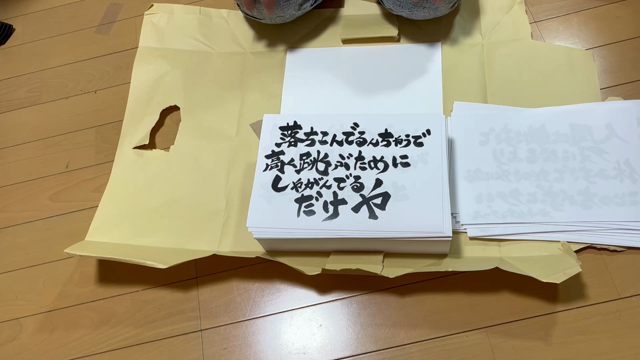 落ちこんでるんちゃうで
高く跳ぶために
しゃがんでる
だけや